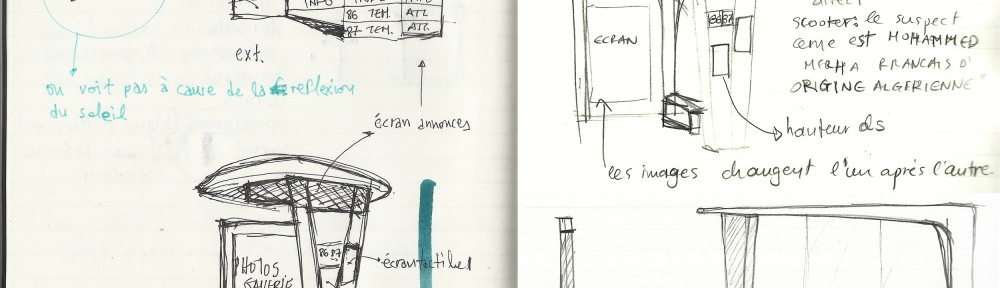 INFO
86 TEM. ATT.
87 TEM. ATT.
ext.
on voit pas à cause de la reflexion
du soleil
écran annonces
86 87
écran tactiles
PHOTOS
GALERIE
ECRAN
8687
direct
scooter: le suspect
cerne est MOHAMMED
MERHA FRANCAIS D'
ORIGINE ALGERIENNE"
hauteur ds
les images changent l'un après l'autre